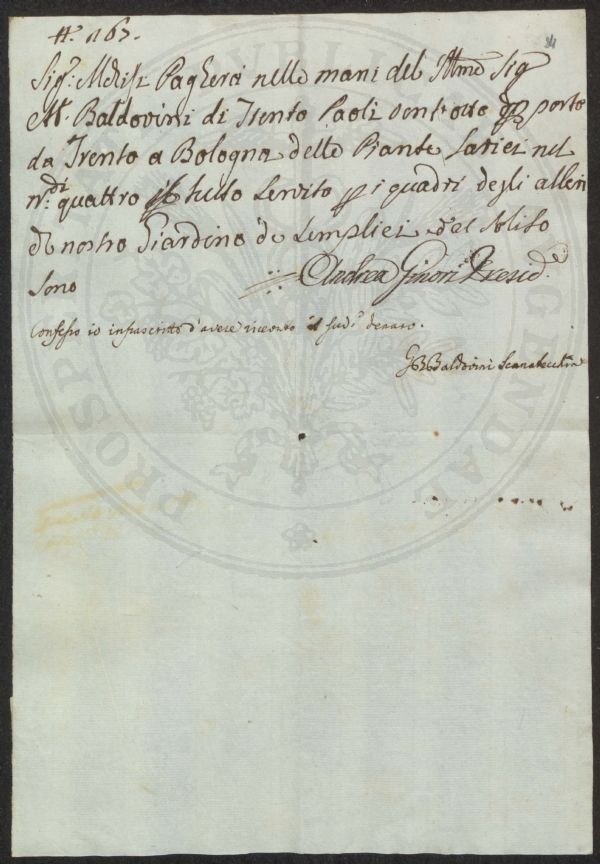 #. 167.
24
Sig.r Melisi Pagherà nelle mani del Illmo Sig
Baldovini di Trento Paoli ventotto porto
da Trento a Bologna delle Piante Larici nel
n.o di quattro il tutto servito p i quadri degli alberi
de nostro Giardino de Semplici
Sono Andrea Ginori Presid.e
Confesso io infrascritto d'avere ricevuto il sud.o denaro.
GB Baldovini
PROSPERITATI PUBLICAE AUGENDAE